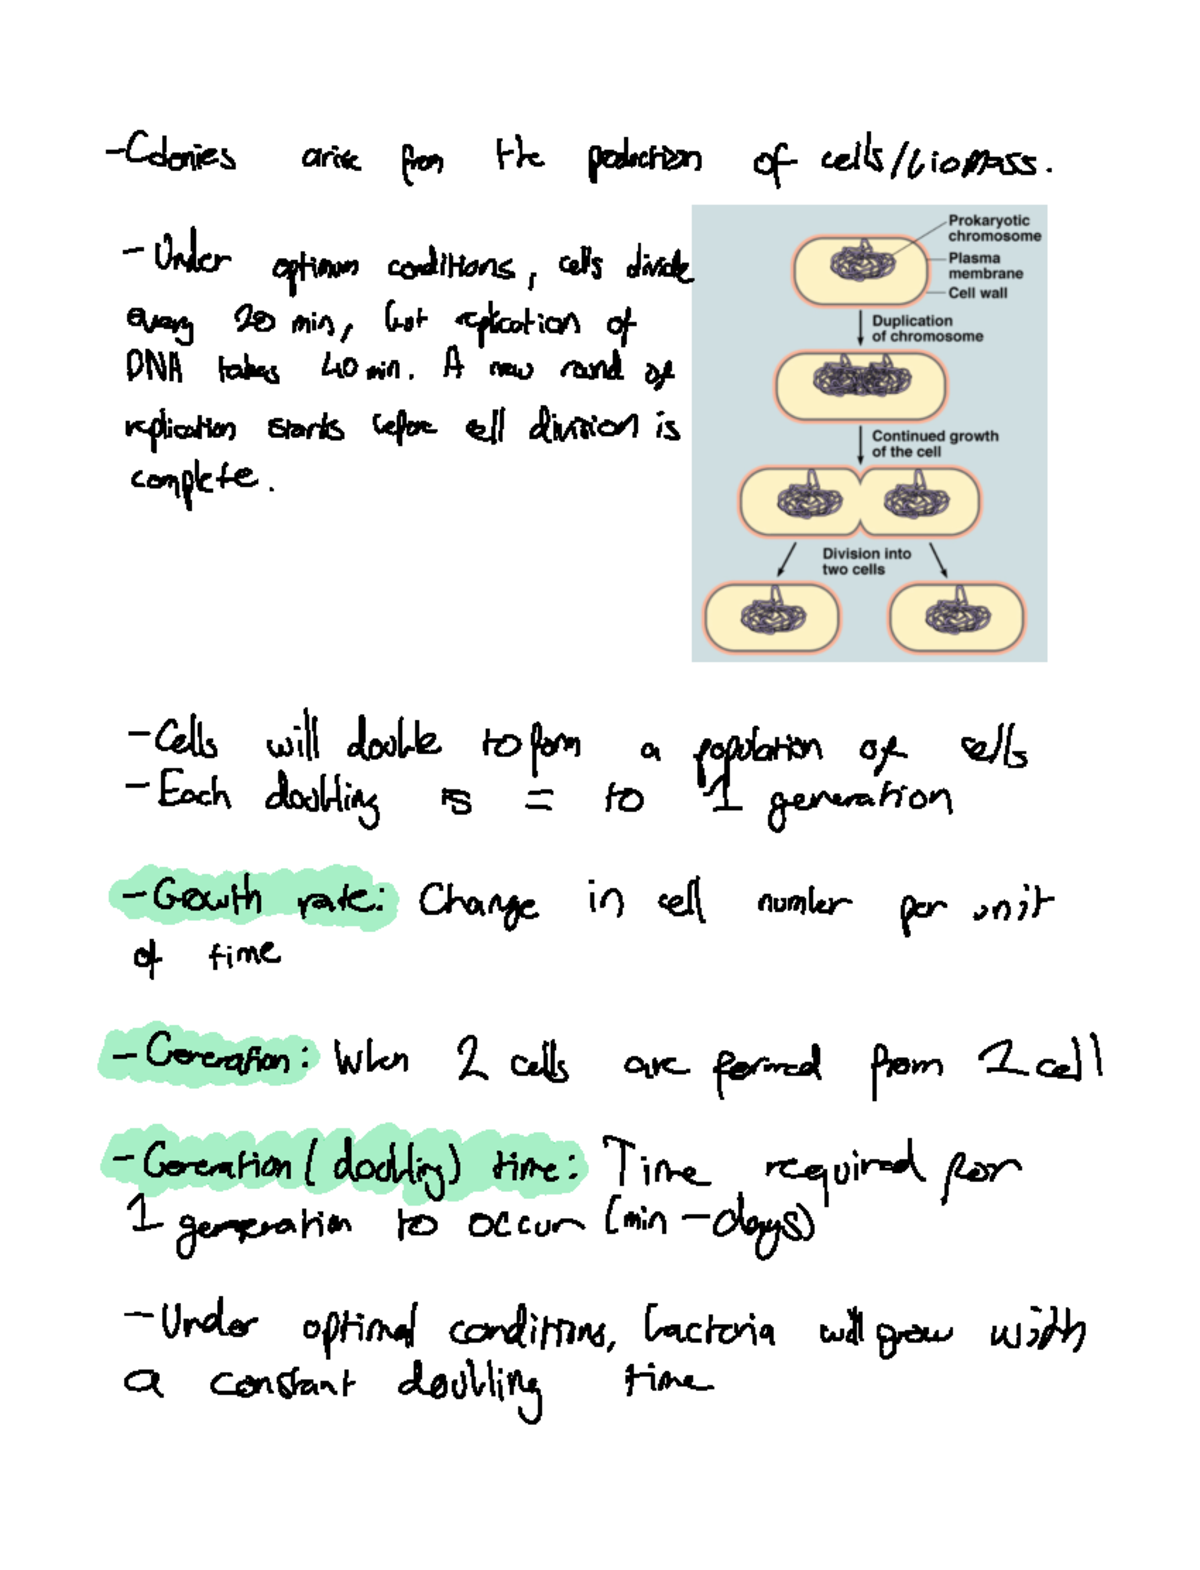 -Colonies arise from the production of cells/biomass.
- Under optimum conditions, cells divide
every 20 min, but replication of
DNA takes 40 min. A new round of
replication starts before cell division is
complete.
Prokaryotic
chromosome
Plasma
membrane
Cell wall
Duplication
of chromosome
Continued growth
of the cell
Division into
two cells
-Cells will double to form a population of cells
-Each doubling is = to 1 generation
-Growth rate: Change in cell number per unit
of time
-Generation: When 2 cells are formed from 1 cell
-Generation (doubling) time: Time required for
1 generation to occur (min-days)
-Under optimal conditions, bacteria will grow with
a constant doubling time